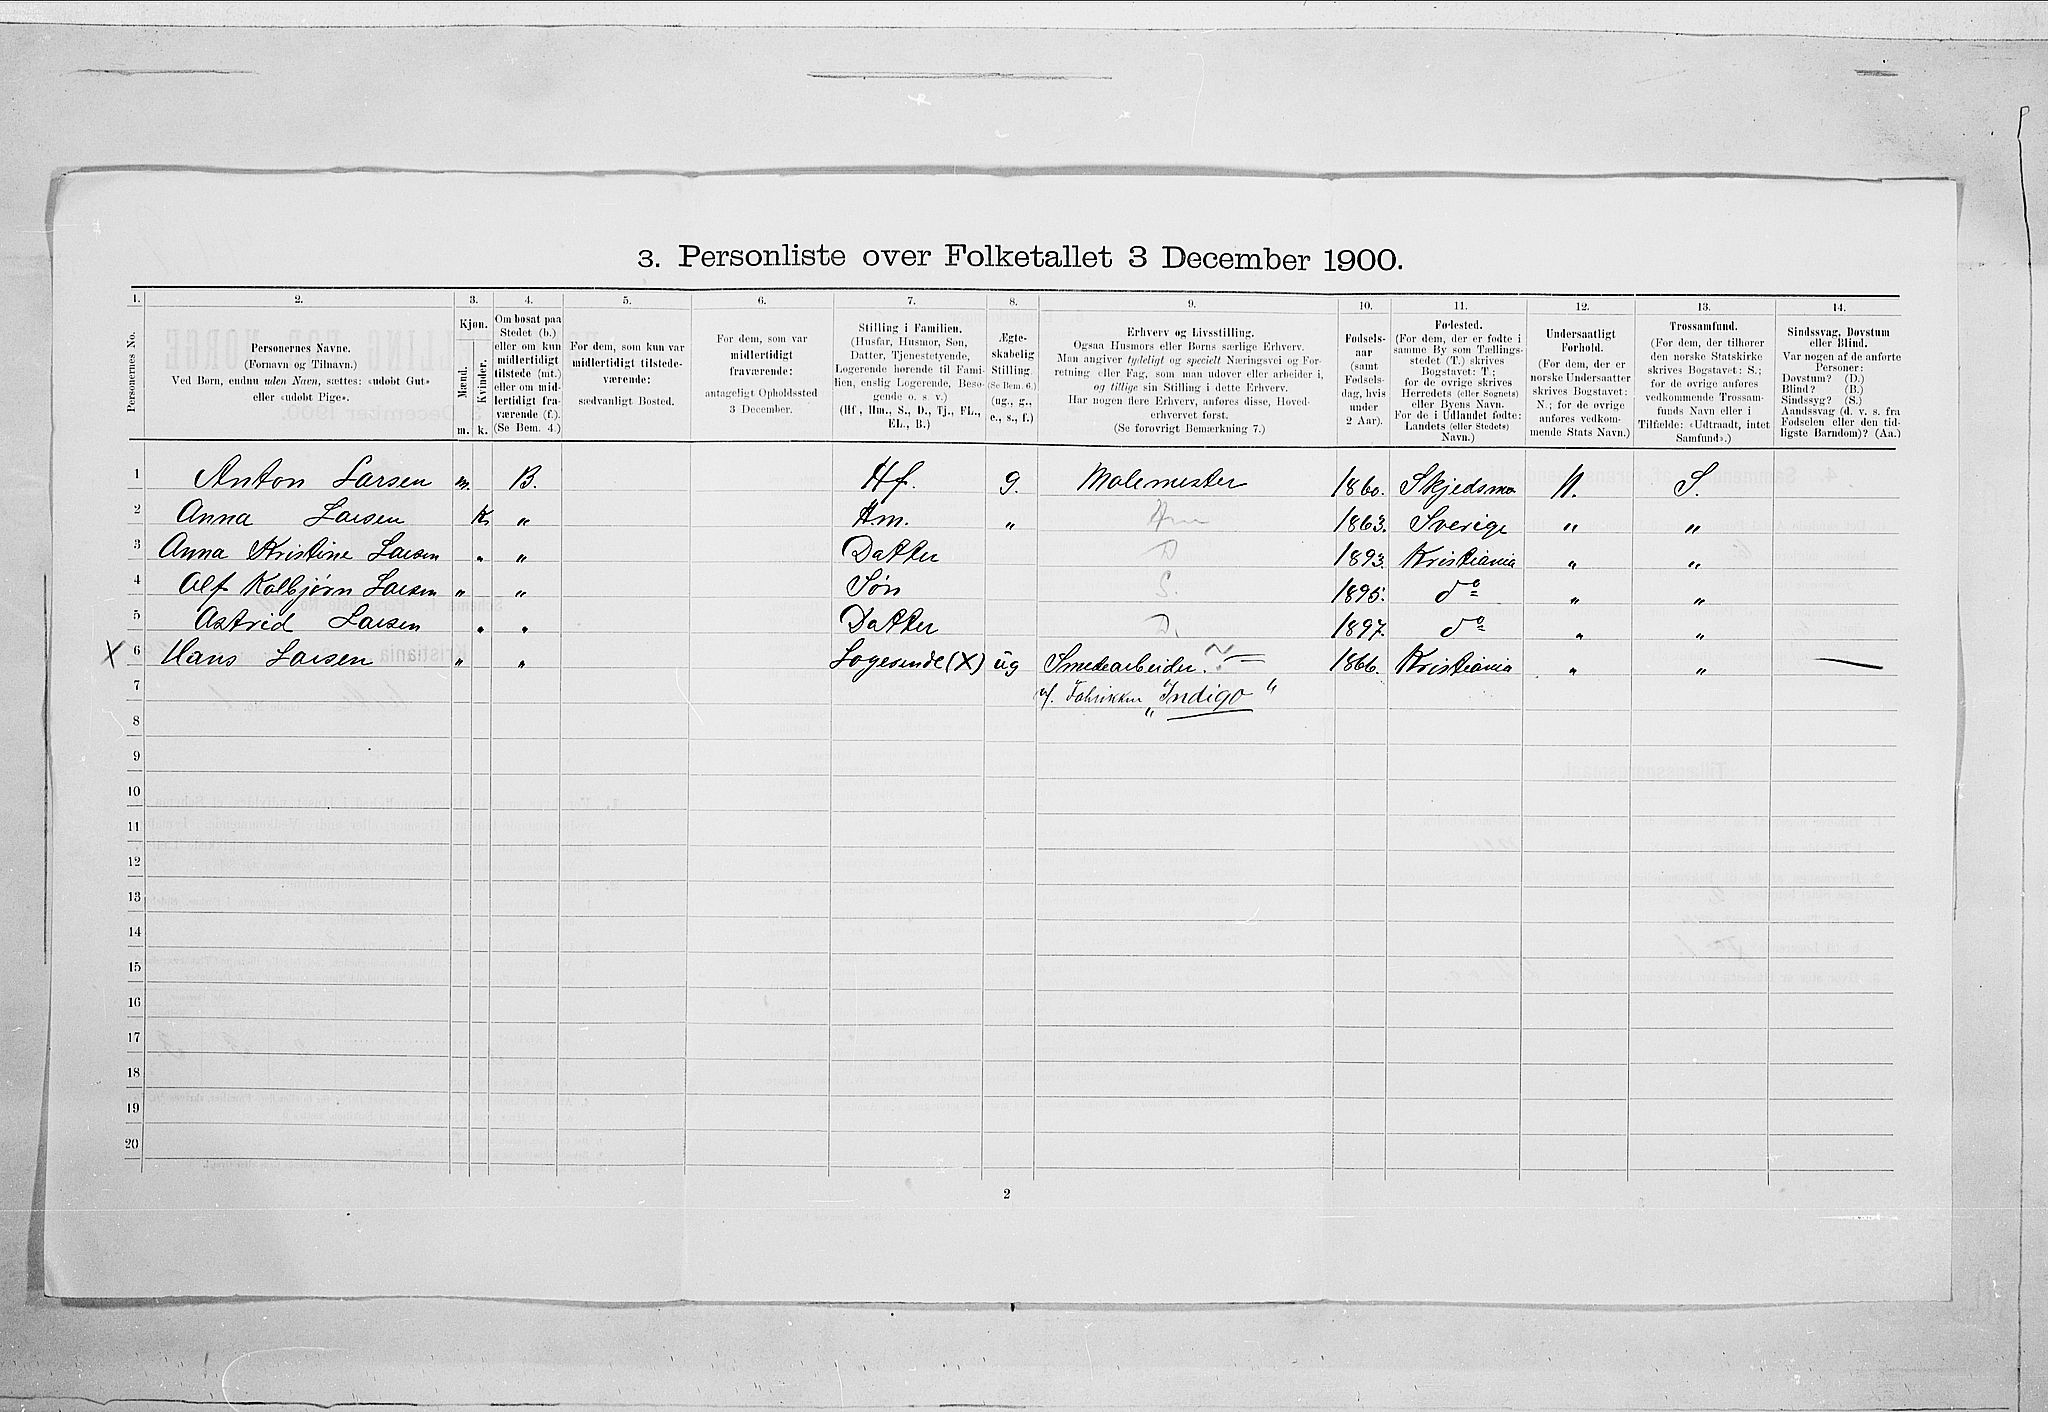 3. Personliste over Folketallet 3 December 1900.
1. 2. 3. 4. 5. 6. 7. 8. 9. 10. 11. 12. 13. 14.
Personernes No.
Personernes Navne.
(Fornavn og Tilnavn.)
Ved Børn, endnu uden Navn, sættes: «udøbt Gut»
eller «udøbt Pige».
Kjøn.
Mænd.
Kvinder.
m. k.
Om bosat paa
Stedet (b.)
eller om kun
midlertidigt
tilstede (mt.)
eller om mid-
lertidigt fra-
værende (f.).
(Se Bem. 4.)
For dem, som kun var
midlertidigt tilstede-
værende:
sædvanligt Bosted.
For dem, som var
midlertidigt
fraværende:
antageligt Opholdssted
3 December.
Stilling i Familien.
(Husfar, Husmor, Søn,
Datter, Tjenestetyende,
Logerende hørende til Fami-
lien, enslig Logerende, Besø-
gende o. s. v.)
(Hf., Hm., S., D., Tj., FL.,
EL., B.)
Ægte-
skabelig
Stilling.
(Se Bem. 6.)
(ug., g.,
e., s., f.)
Erhverv og Livsstilling.
Ogsaa Husmors eller Børns særlige Erhverv.
Man angiver tydeligt og specielt Næringsvei og For-
retning eller Fag, som man udøver eller arbeider i,
og tillige sin Stilling i dette Erhverv.
Har nogen flere Erhverv, anføres disse, Hoved-
erhvervet først.
(Se forøvrigt Bemærkning 7.)
Fødsels-
aar
(samt
Fødsels-
dag, hvis
under
2 Aar).
Fødested.
(For dem, der er fødte i
samme By som Tællings-
stedet (T.) skrives
Bogstavet: T;
for de øvrige skrives
Herredets (eller Sognets)
eller Byens Navn.
For de i Udlandet fødte:
Landets (eller Stedets)
Navn.)
Undersaatligt
Forhold.
(For dem, der er
norske Undersaatter
skrives Bogstavet:
N.; for de øvrige
anføres vedkom-
mende Stats Navn.)
Trossamfund.
(For dem, der tilhører
den norske Statskirke
skrives Bogstavet: S.;
for de øvrige anføres
vedkommende Trossam-
funds Navn eller i
Tilfælde: «Udtraadt, intet
Samfund».)
Sindssvag, Døvstum
eller Blind.
Var nogen af de anførte
Personer:
Døvstum? (D.)
Blind? (B.)
Sindssyg? (S.)
Aandssvag (d. v. s. fra
Fødselen eller den tid-
ligste Barndom)? (Aa.)
1 Anton Larsen m. B. Hf. g. Malemester 1860. Skjedsmo N. S.
2 Anna Larsen K " Hm. " Hm 1863. Sverige " "
3 Anna Kristine Larsen " " Datter D 1893. Kristiania " "
4 Alf Kolbjørn Larsen " " Søn S. 1895. do " "
5 Astrid Larsen " " Datter D. 1897. do " "
X 6 Hans Larsen " " Logerende (X) ug Smedearbeider. 1866. Kristiania " " —
7 v/. Fabrikken „Indigo"
8
9
10
11
12
13
14
15
16
17
18
19
20
2